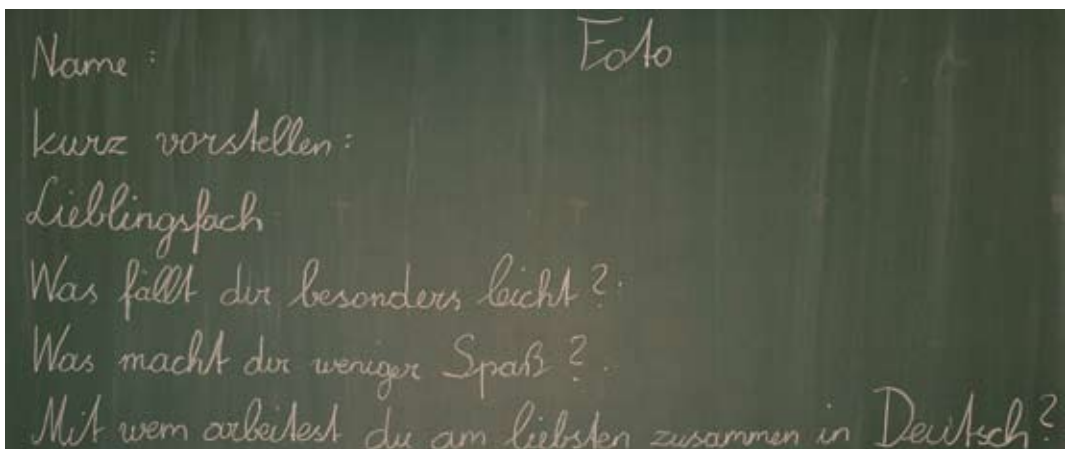 Name : Foto
kurz vorstellen:
Lieblingsfach
Was fällt dir besonders leicht?
Was macht dir weniger Spaß?
Mit wem arbeitest du am liebsten zusammen in Deutsch?